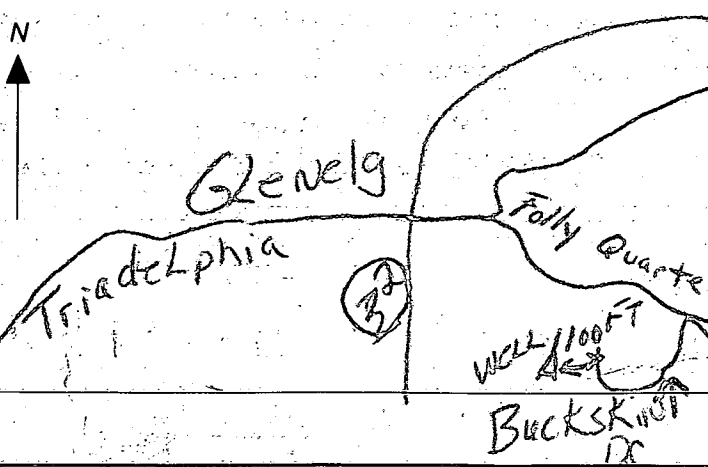 N
Glenelg
Triadelphia
32
Folly Quarte
WELL 100 FT
Buckskin
Dr